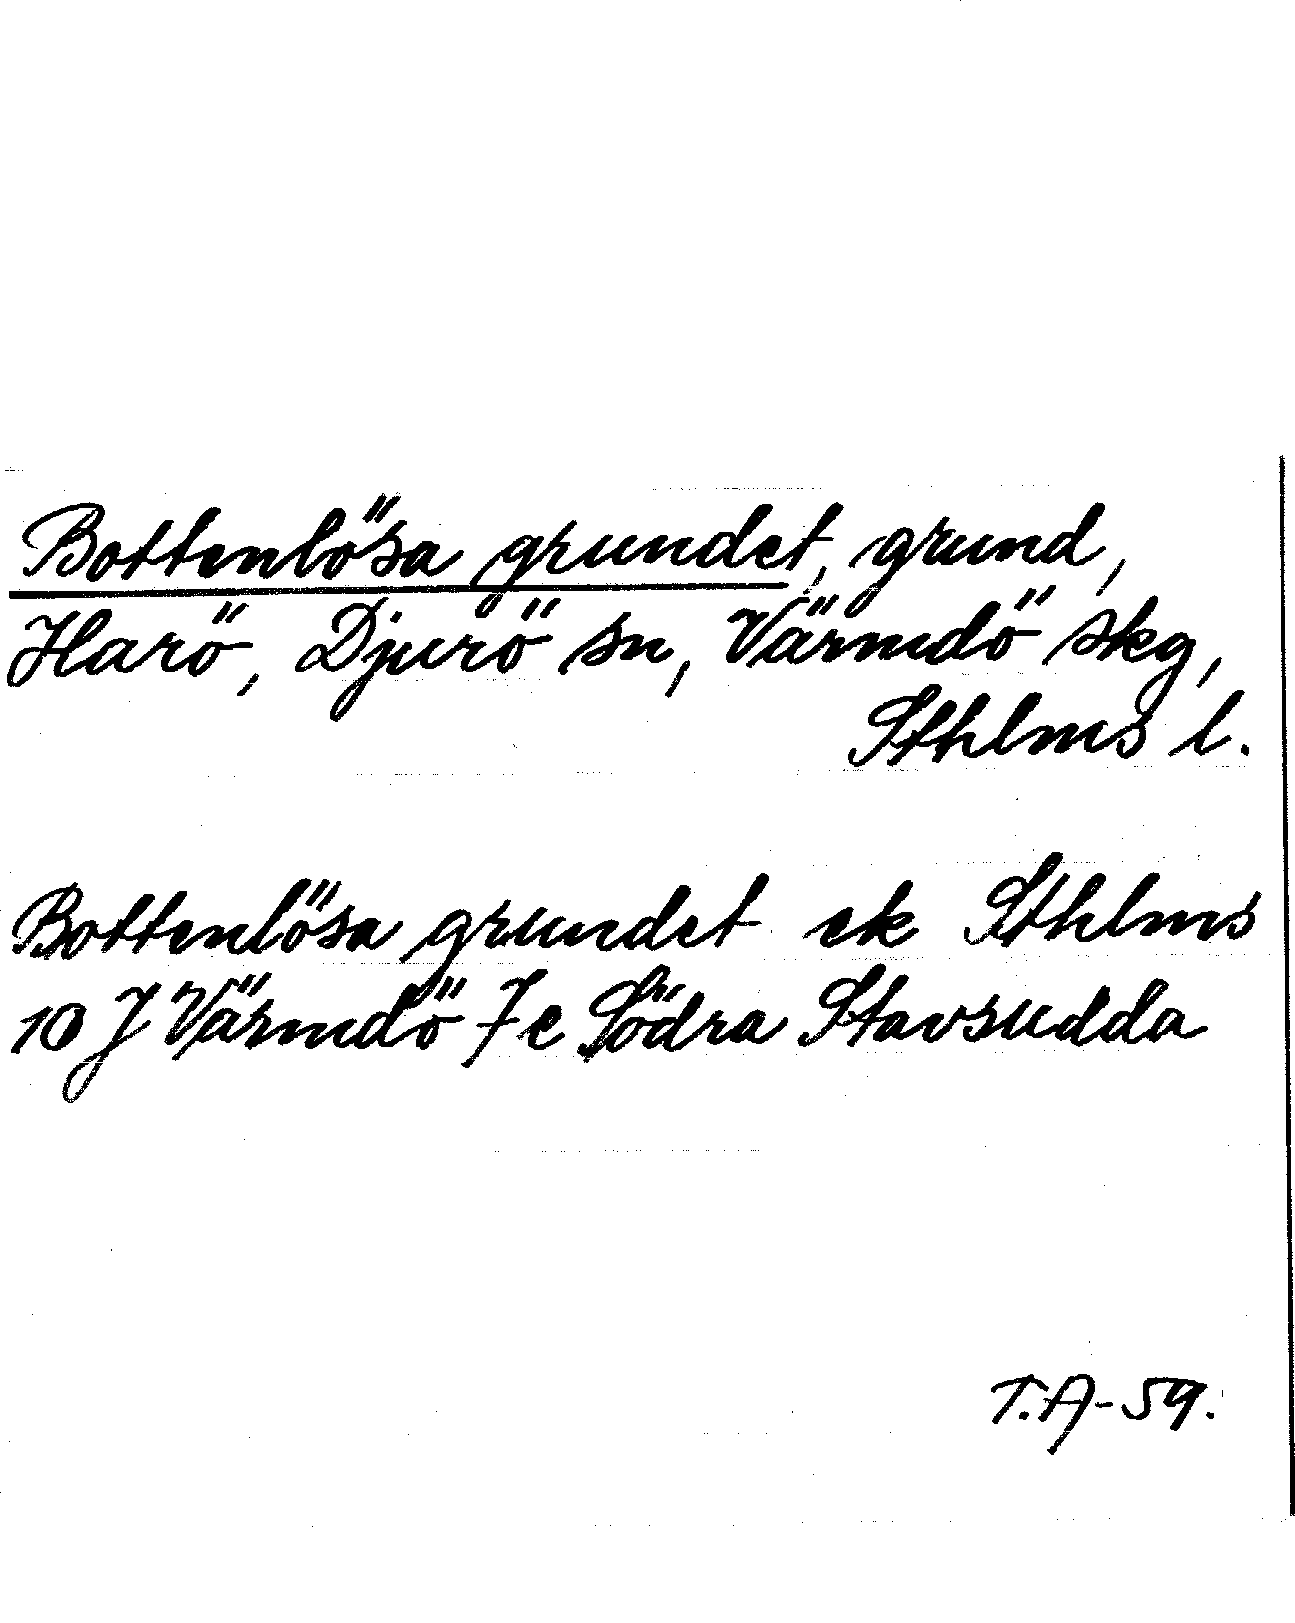 Bottenlösa grundet, grund,
Harö, Djurö sn, Värmdö skg,
Sthlms l.
Bottenlösa grundet ek Sthlms
10 J Värmdö 7e Södra Stavsudda
T.A-59.